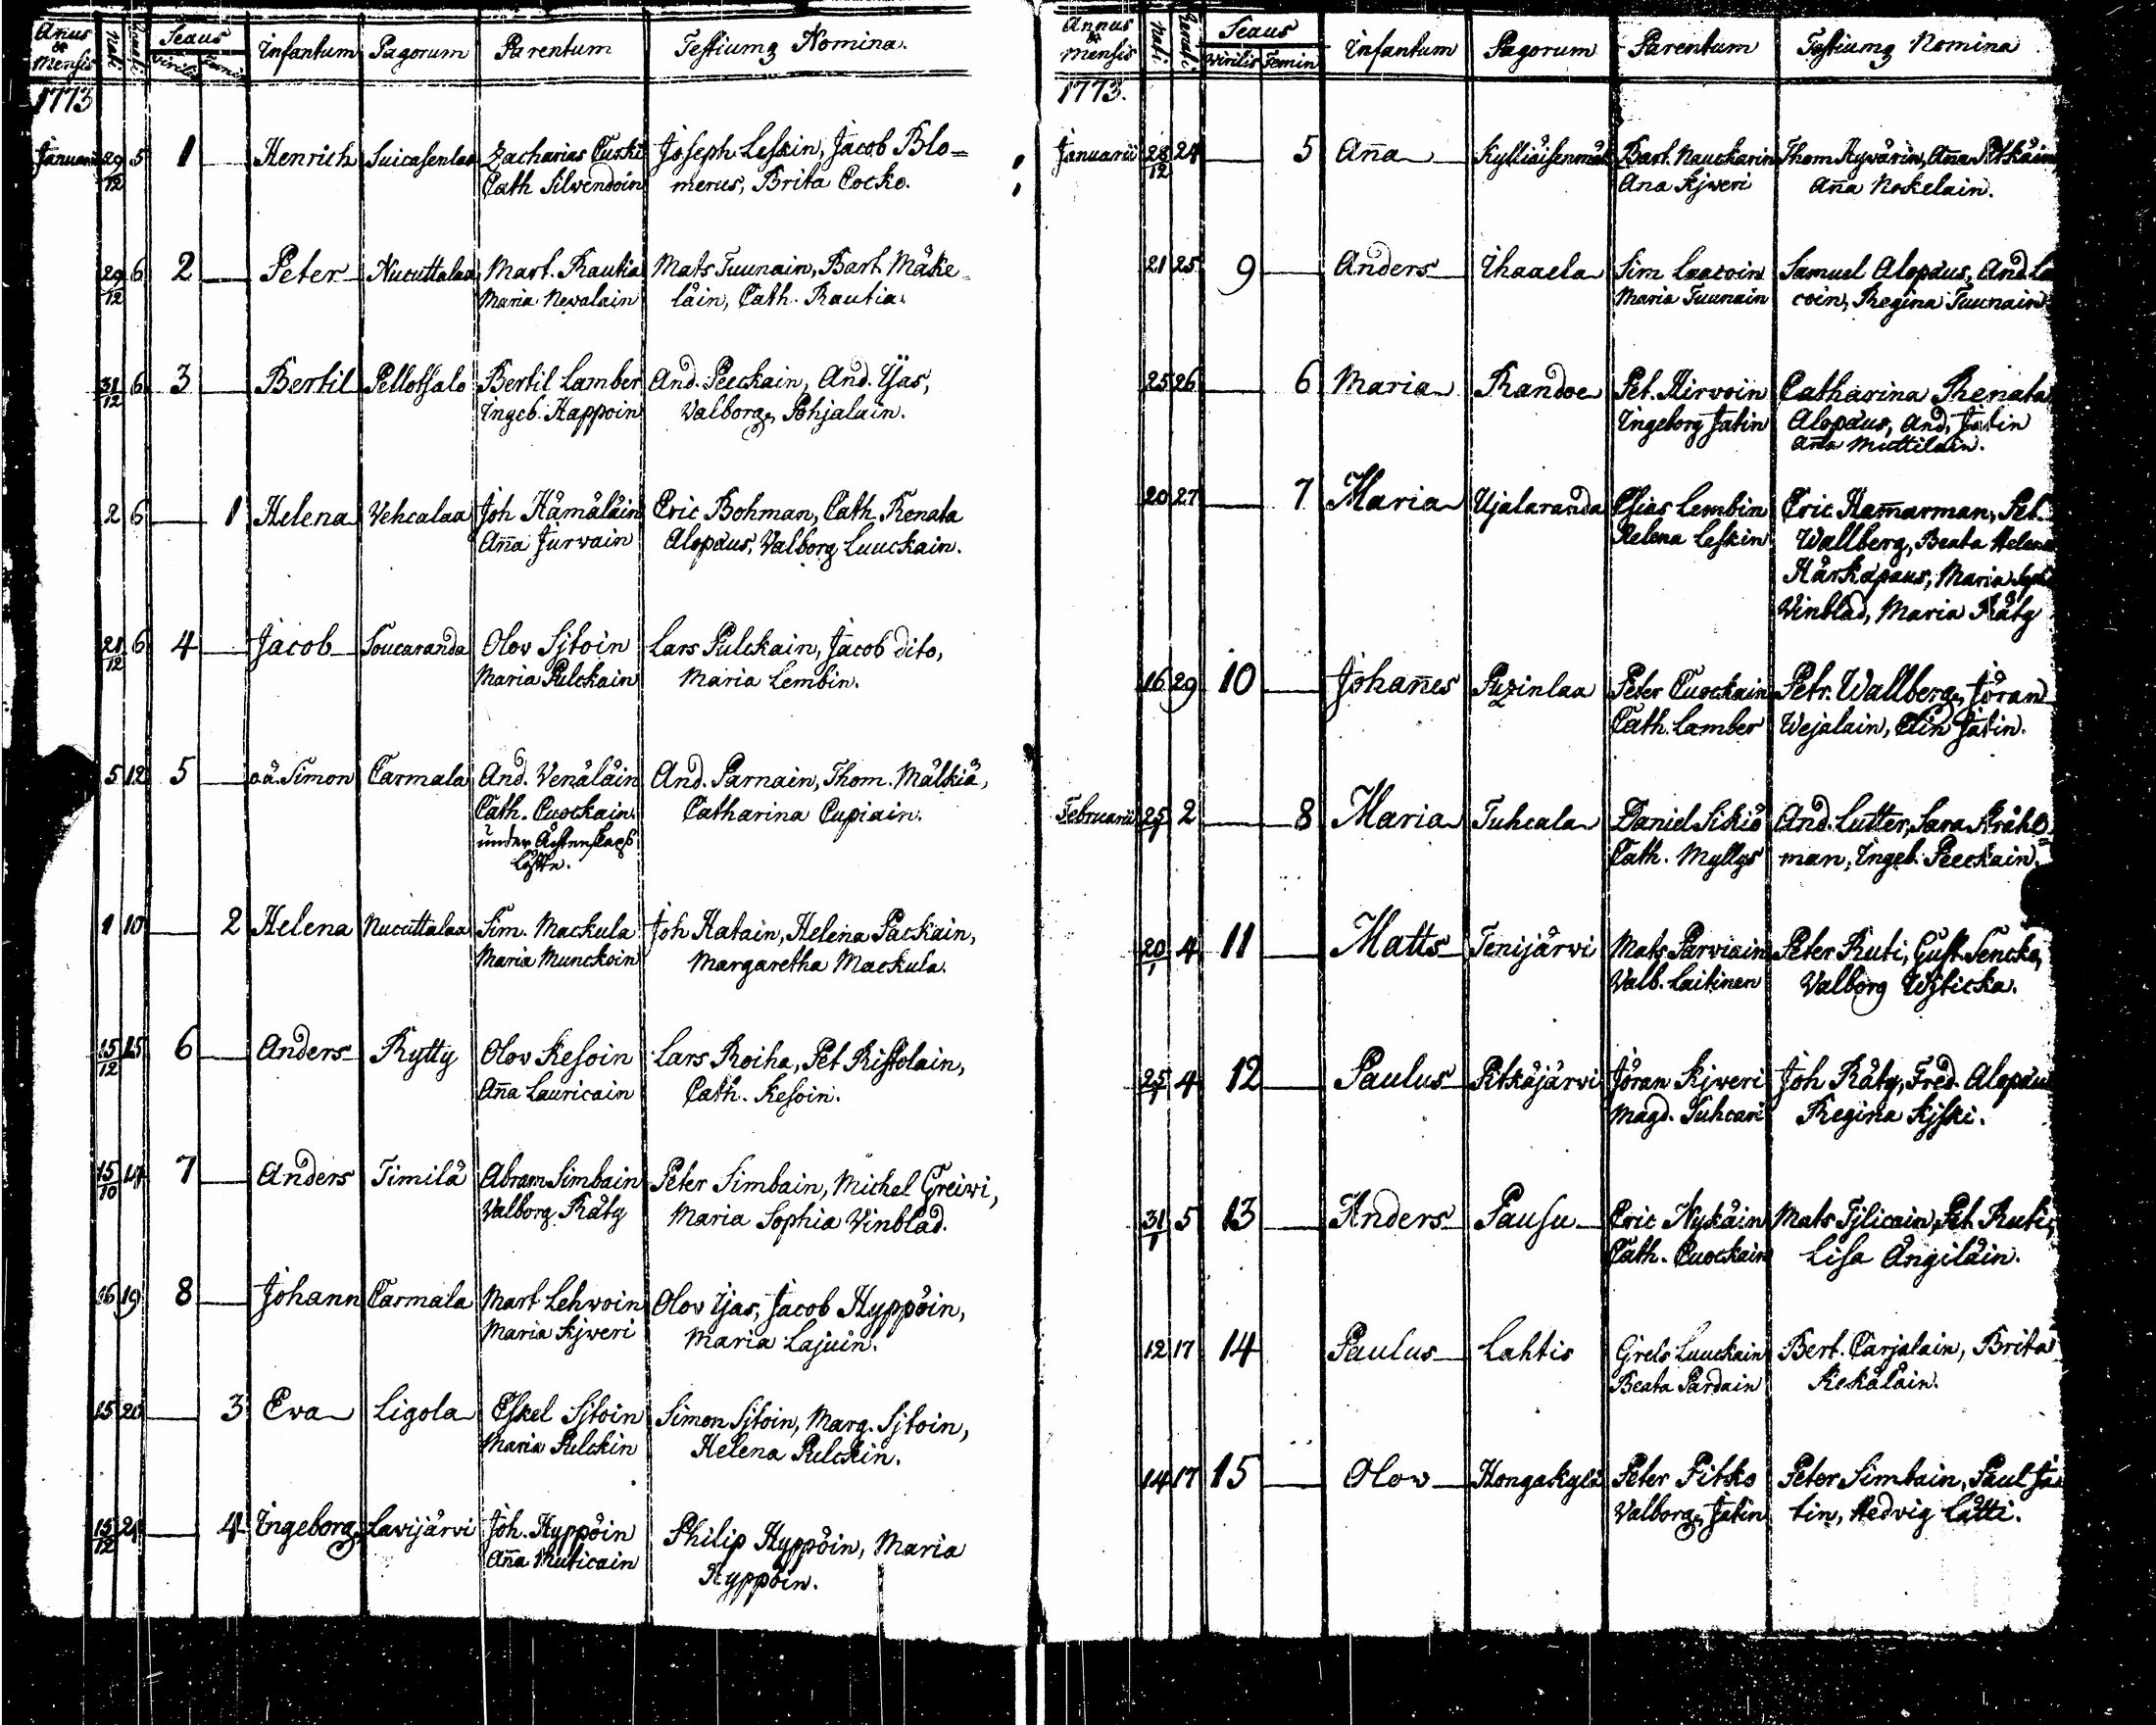 Annus & Mensis Nati Renati Sexus Infantum Pagorum Parentum Testiumq Nomina.
Virilis Femin
1773
Januarii 29/12 5 1 Henrich Suicasenlax Zacharias Curki Joseph Leskin, Jacob Blo=
Cath Silvendoin merus, Brita Cocko.
29/12 6 2 Peter Nucuttalaa Mart. Rautia Mats Tuunain, Bart Mäke=
Maria Newalain läin, Cath. Rautia.
31/12 6 3 Bertil Pellotsalo Bertil Lamber And. Peeckain, And. Yjas,
Ingeb. Happoin Valborg Pohjalain.
2 6 1 Helena Vehcalaa Joh Hämäläin Eric Bohman, Cath. Renata
Aña Jurvain Alopæus, Valborg Luuckain.
21/12 6 4 Jacob Soucaranda Olov Sjtoin Lars Pulckain, Jacob dito,
Maria Pulckain Maria Lembin.
5 12 5 o.ä. Simon Carmala And. Venäläin And. Parnain, Thom. Mälkiä,
Cath. Cuockain. Catharina Cupiain.
under Ächtenskaps
löffte.
1 10 2 Helena Nucuttalaa Sim. Mackula Joh Hatain, Helena Packain,
Maria Munckoin Margaretha Mackula.
15/12 15 6 Anders Rytty Olov Kesoin Lars Roiha, Pet Ristolain,
Aña Lauricain Cath. Kesoin.
15/10 14 7 Anders Timilä Abram Simbain Peter Simbain, Michel Greiwi,
Valborg Räty Maria Sophia Vinblad.
16 19 8 Johann Carmala Mart Lehwoin Olov Yjas, Jacob Hyppöin,
Maria Kjweri Maria Lajuin.
15 20 3 Eva Ligola Eskel Sjtoin Simon Sjtoin, Marg. Sjtoin,
Maria Pulckin Helena Pulckin.
15/12 21 4 Ingeborg Lavijärvi Joh. Hyppöin Philip Hyppöin, Maria
Aña Muticain Hyppöin.
Annus & Mensis Nati Renati Sexus Infantum Pagorum Parentum Testiumq Nomina
Virilis Femin
1773.
Januarii 28/12 24 5 Aña Kylliäisenmäk Bart. Nauckarin Thom Hyvärin, Aña Pitkäin
Ana Kjweri Aña Nokelain.
21 25 9 Anders Ihaaela Sim Laacoin Samuel Alopæus, And. La
Maria Tuunain coin, Regina Tuunain
25 26 6 Maria Randoe Pet. Hirvoin Catharina Renata
Ingeborg Jatin Alopæus, And. Jatin
Aña Muttilain.
20 27 7 Maria Ujalaranda Elias Lembin Eric Hamarman, Pet.
Helena Leskin Wallberg, Beata Helena
Härkäpæus, Maria Soph
Vinblad, Maria Räty
16 29 10 Johañes Puzinlaa Peter Cuockain Petr. Wallberg, Jöran
Cath. Lamber Wejalain, Elin Jatin.
Februarii 25/1 2 8 Maria Tuhcala Daniel Sikiö And. Lutter, Sara Kråhs
Cath. Myllys man, Ingeb. Peeckain.
20/1 4 11 Matts Tenijärvi Mats Parviain Peter Ruti, Gust. Sencko,
Valb. Laitinen Valborg Wjticka.
25/1 4 12 Paulus Pitkäjärvi Jöran Kjweri Joh Räty, Fred. Alopæu
Magd. Tuhcari Regina Kjski.
31/1 5 13 Anders Pausu Eric Nykäin Mats Tjlicain, Pet. Ruti,
Cath. Cuockain Lisa Ängiläin.
12 17 14 Paulus Lahtis Grels Luuckain Bert. Carjalain, Brita
Beata Pardain Kekäläin.
14 17 15 Olov Hongakylä Peter Pitko Peter Simbain, Paul Ja
Valborg Jatin tin, Hedvig Lätti.